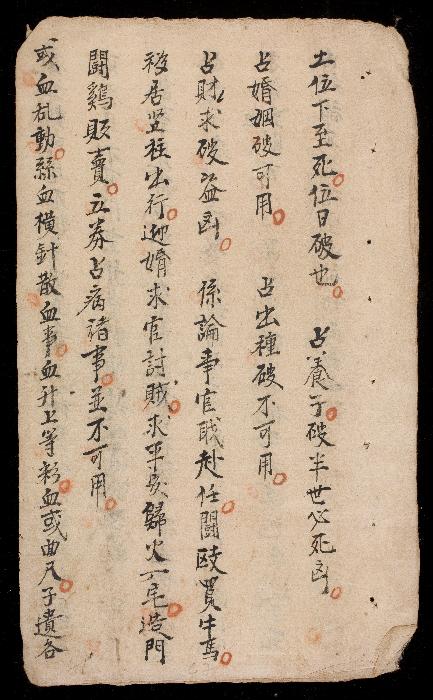 土位下至死位日破也 占養子破半世必死凶
占婚姻破可用 占出種破不可用
占財求破益凶 係論事官職赴任鬪毆買牛馬
移居竪柱出行迎婚求官討賊求平安歸火六宅造門
鬪鷄販賣立券占病諸事並不可用
或血乱動絲血橫針散血事血升上等彩血或曲尺子遺各